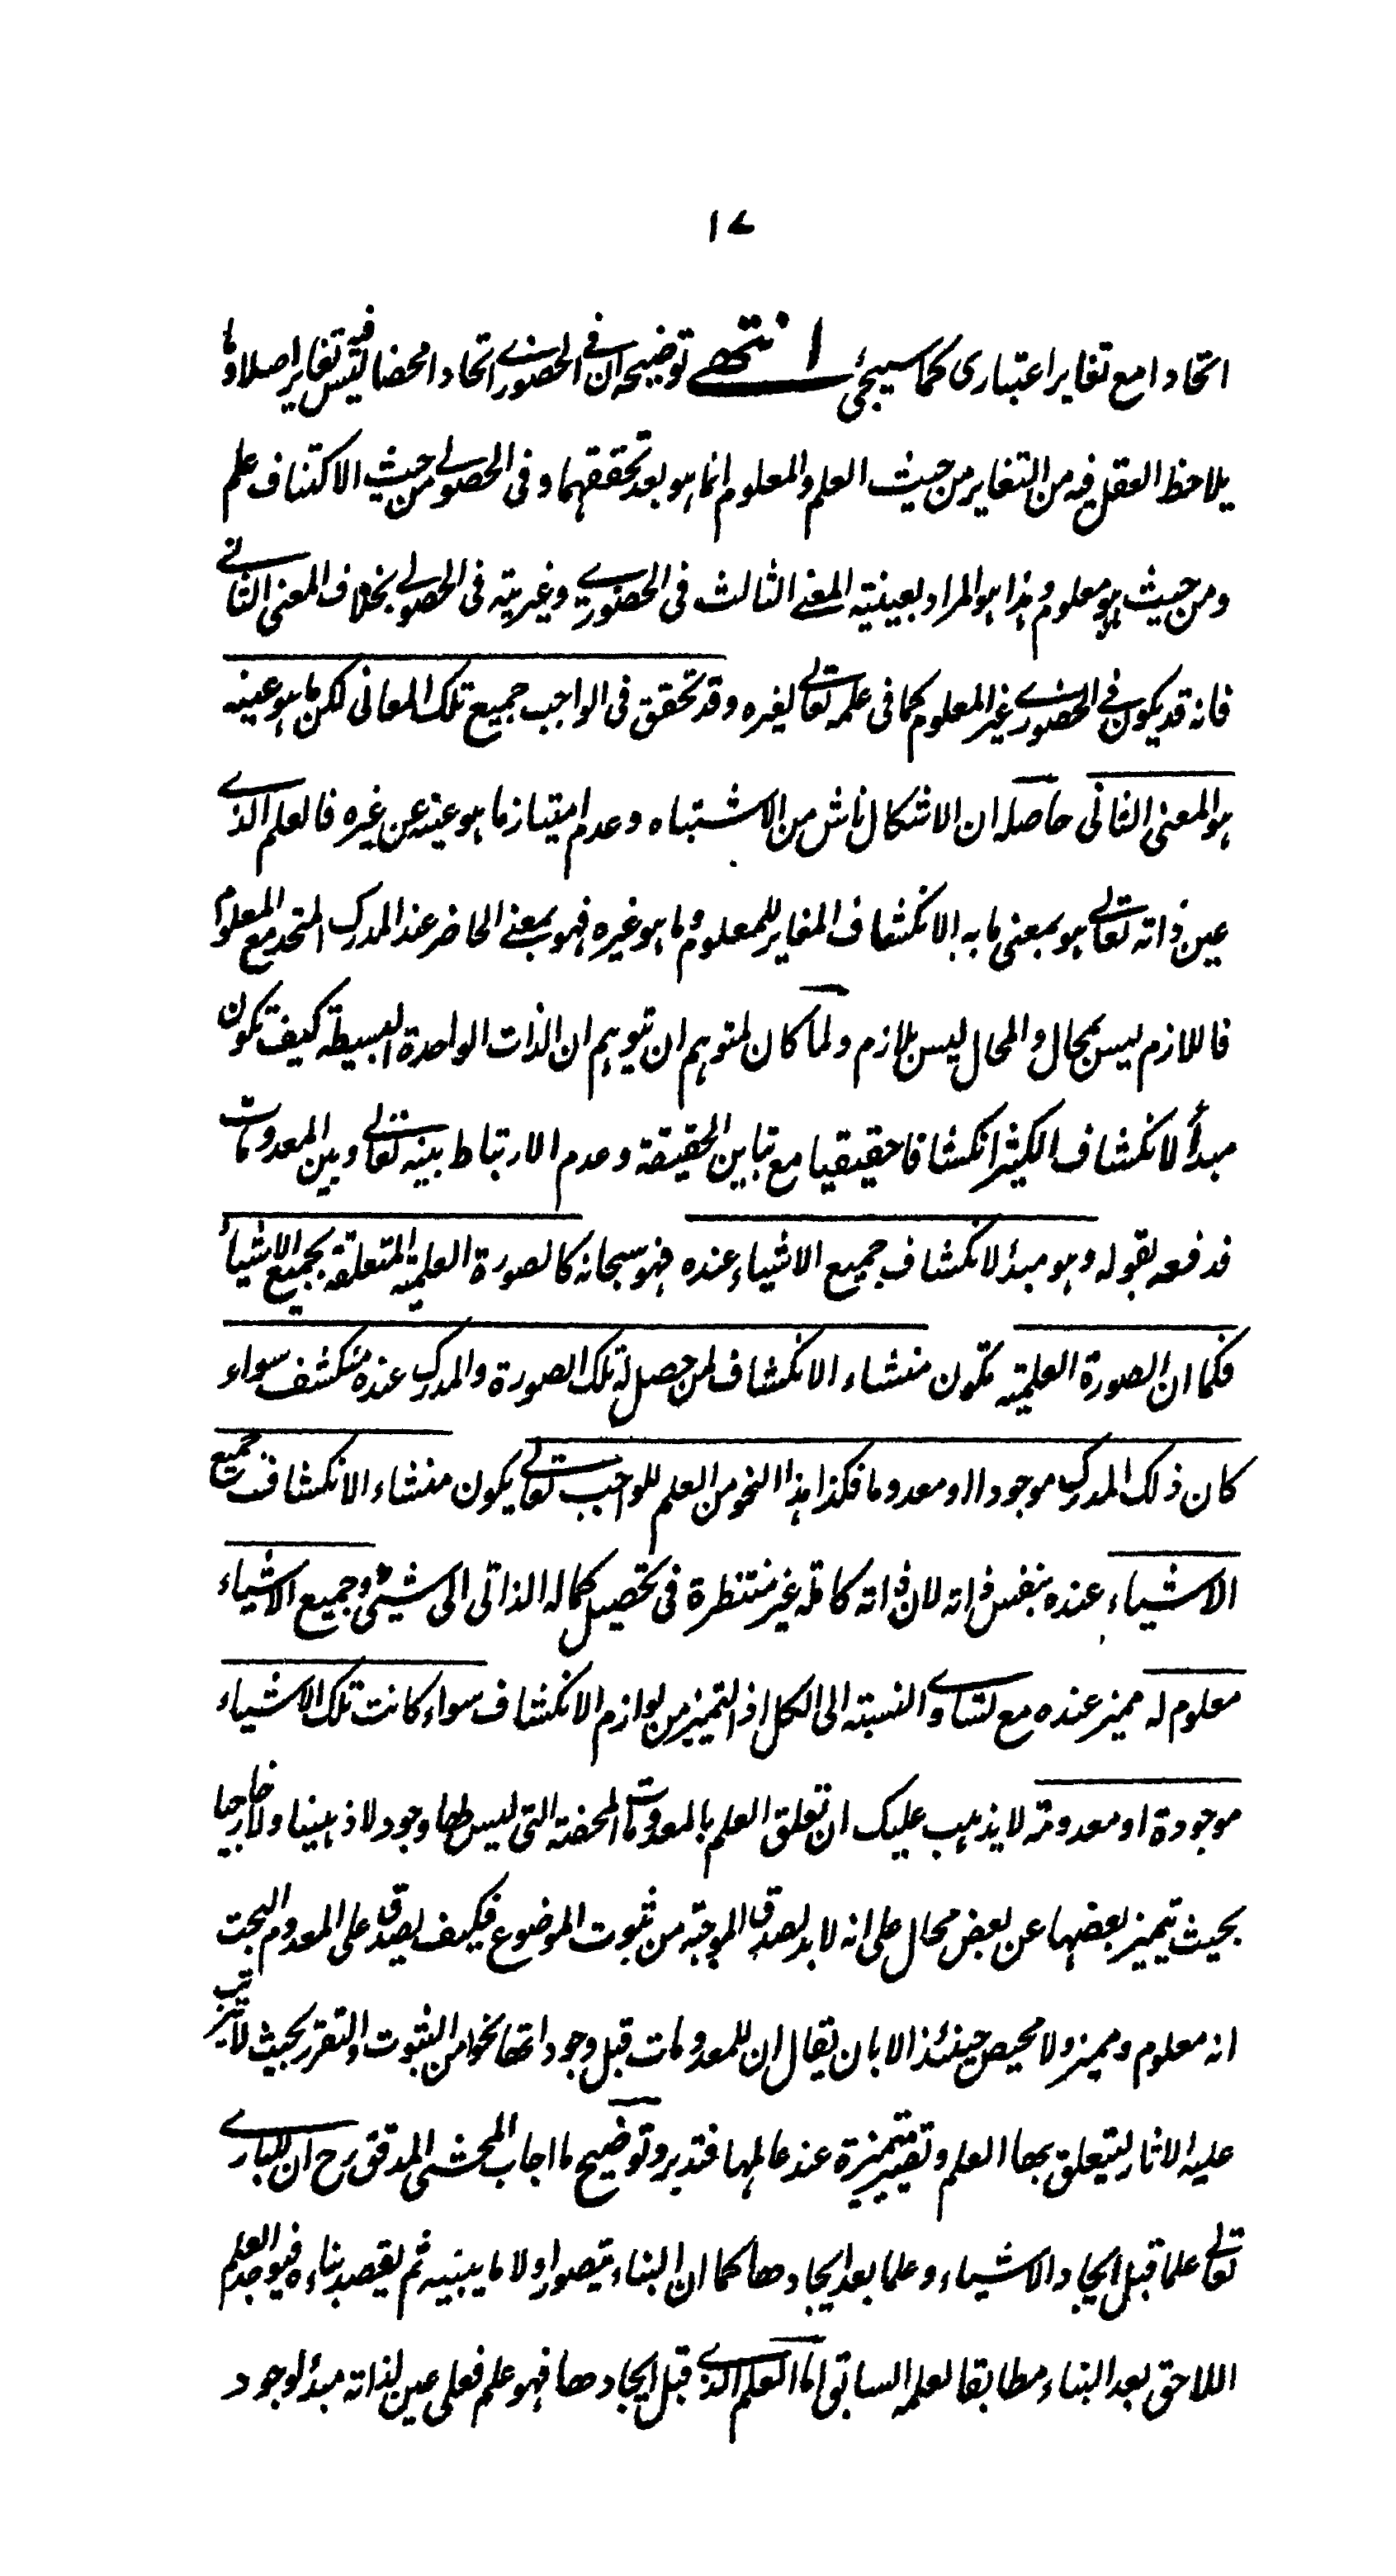 ١٧
اتحادا مع تغاير اعتبارى كما سيجئ انتهى توضيحه ان فى الحضورى اتحادا محضا ليس فيه تغاير اصلا وما
يلاحظ العقل فيه من التغاير من حيث العلم والمعلوم انما هو بعد تحققهما وفى الحصولى من حيث الاكتناف علم
ومن حيث هو هو معلوم وهذا هو المراد بعينيته المعنى الثالث فى الحضورى وغيريته فى الحصولى بخلاف المعنى الثانى
فانه قد يكون فى الحضورى غير المعلوم كما فى علمه تعالى لغيره وقد تحقق فى الواجب جميع تلك المعانى لكن ما هو عينه
هو المعنى الثانى حاصله ان الاشكال ناش من الاشتباه وعدم امتياز ما هو عينه عن غيره فالعلم الذى
عين ذاته تعالى هو بمعنى ما به الانكشاف المغاير للمعلوم وما هو غيره فهو بمعنى الحاضر عند المدرك المتحد مع المعلوم
فاللازم ليس بمحال والمحال ليس بلازم ولما كان لمتوهم ان يتوهم ان الذات الواحدة البسيطة كيف تكون
مبدأ لانكشاف الكثير انكشافا حقيقيا مع تباين الحقيقة وعدم الارتباط بينه تعالى وبين المعدومات
فدفعه بقوله وهو مبدأ لانكشاف جميع الاشياء عنده فهو سبحانه كالصورة العلمية المتعلقة بجميع الاشياء
فكما ان الصورة العلمية تكون منشاء الانكشاف لمن حصل له تلك الصورة والمدرك عنده منكشف سواء
كان ذلك المدرك موجودا او معدوما فكذا هذا النحو من العلم للواجب تعالى يكون منشاء الانكشاف جميع
الاشياء عنده بنفس ذاته لان ذاته كاملة غير منتظرة فى تحصيل كماله الذاتى الى شيئ وجميع الاشياء
معلوم له مميز عنده مع تساوى النسبته الى الكل اذ التميز من لوازم الانكشاف سواء كانت تلك الاشياء
موجودة او معدومة لا يذهب عليك ان تعلق العلم بالمعدومات المحضة التى ليس لها وجود لا ذهينا ولا خارجيا
بحيث يتميز بعضها عن بعض محال على انه لا بد لصدق الموجبة من ثبوت الموضوع فكيف يصدق على المعدوم البحت
انه معلوم ومميز ولا محيص حينئذ الا بان يقال ان للمعدومات قبل وجوداتها نحوا من الثبوت والتقرر بحيث لا يترتب
عليه الاثار ليتعلق بها العلم وتصير متميزة عند عالمها فتدبر وتوضيح ما اجاب المحشى المدقق رح ان للبارى
تعالى علما قبل ايجاد الاشياء وعلما بعد ايجادها كما ان البناء يتصور اولا ما يبنيه ثم يقصد بناءه فيوجد العلم
اللاحق بعد البناء مطابقا لعلمه السابق اما العلم الذى قبل ايجادها فهو علم فعلى عين لذاته مبدأ لوجود